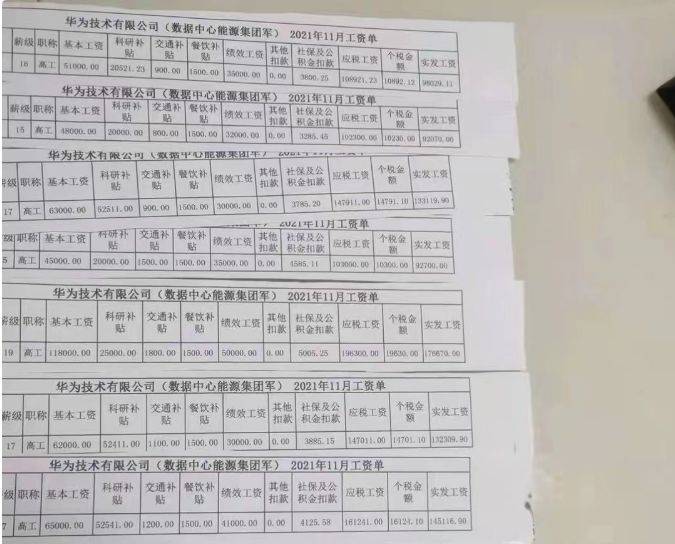 华为技术有限公司（数据中心能源集团军） 2021年11月工资单
薪级 职称 基本工资 科研补贴 交通补贴 餐饮补贴 绩效工资 其他扣款 社保及公积金扣款 应税工资 个税金额 实发工资
16 高工 51000.00 20521.23 900.00 1500.00 35000.00 0.00 3800.25 108921.23 10892.12 98029.11
华为技术有限公司（数据中心能源集团军） 2021年11月工资单
薪级 职称 基本工资 科研补贴 交通补贴 餐饮补贴 绩效工资 其他扣款 社保及公积金扣款 应税工资 个税金额 实发工资
15 高工 48000.00 20000.00 800.00 1500.00 32000.00 0.00 3285.45 102300.00 10230.00 92070.00
华为技术有限公司（数据中心能源集团军） 2021年11月工资单
薪级 职称 基本工资 科研补贴 交通补贴 餐饮补贴 绩效工资 其他扣款 社保及公积金扣款 应税工资 个税金额 实发工资
17 高工 63000.00 52511.00 900.00 1500.00 30000.00 0.00 3785.20 147911.00 14791.10 133119.90
华为技术有限公司（数据中心能源集团军） 2021年11月工资单
级 职称 基本工资 科研补贴 交通补贴 餐饮补贴 绩效工资 其他扣款 社保及公积金扣款 应税工资 个税金额 实发工资
5 高工 45000.00 20000.00 1500.00 1500.00 35000.00 0.00 4585.11 103000.00 10300.00 92700.00
华为技术有限公司（数据中心能源集团军） 2021年11月工资单
薪级 职称 基本工资 科研补贴 交通补贴 餐饮补贴 绩效工资 其他扣款 社保及公积金扣款 应税工资 个税金额 实发工资
19 高工 118000.00 25000.00 1800.00 1500.00 50000.00 0.00 5005.25 196300.00 19630.00 176670.00
华为技术有限公司（数据中心能源集团军） 2021年11月工资单
薪级 职称 基本工资 科研补贴 交通补贴 餐饮补贴 绩效工资 其他扣款 社保及公积金扣款 应税工资 个税金额 实发工资
17 高工 62000.00 52411.00 1100.00 1500.00 30000.00 0.00 3885.15 147011.00 14701.10 132309.90
华为技术有限公司（数据中心能源集团军） 2021年11月工资单
级 职称 基本工资 科研补贴 交通补贴 餐饮补贴 绩效工资 其他扣款 社保及公积金扣款 应税工资 个税金额 实发工资
7 高工 65000.00 52541.00 1200.00 1500.00 41000.00 0.00 4125.58 161241.00 16124.10 145116.90